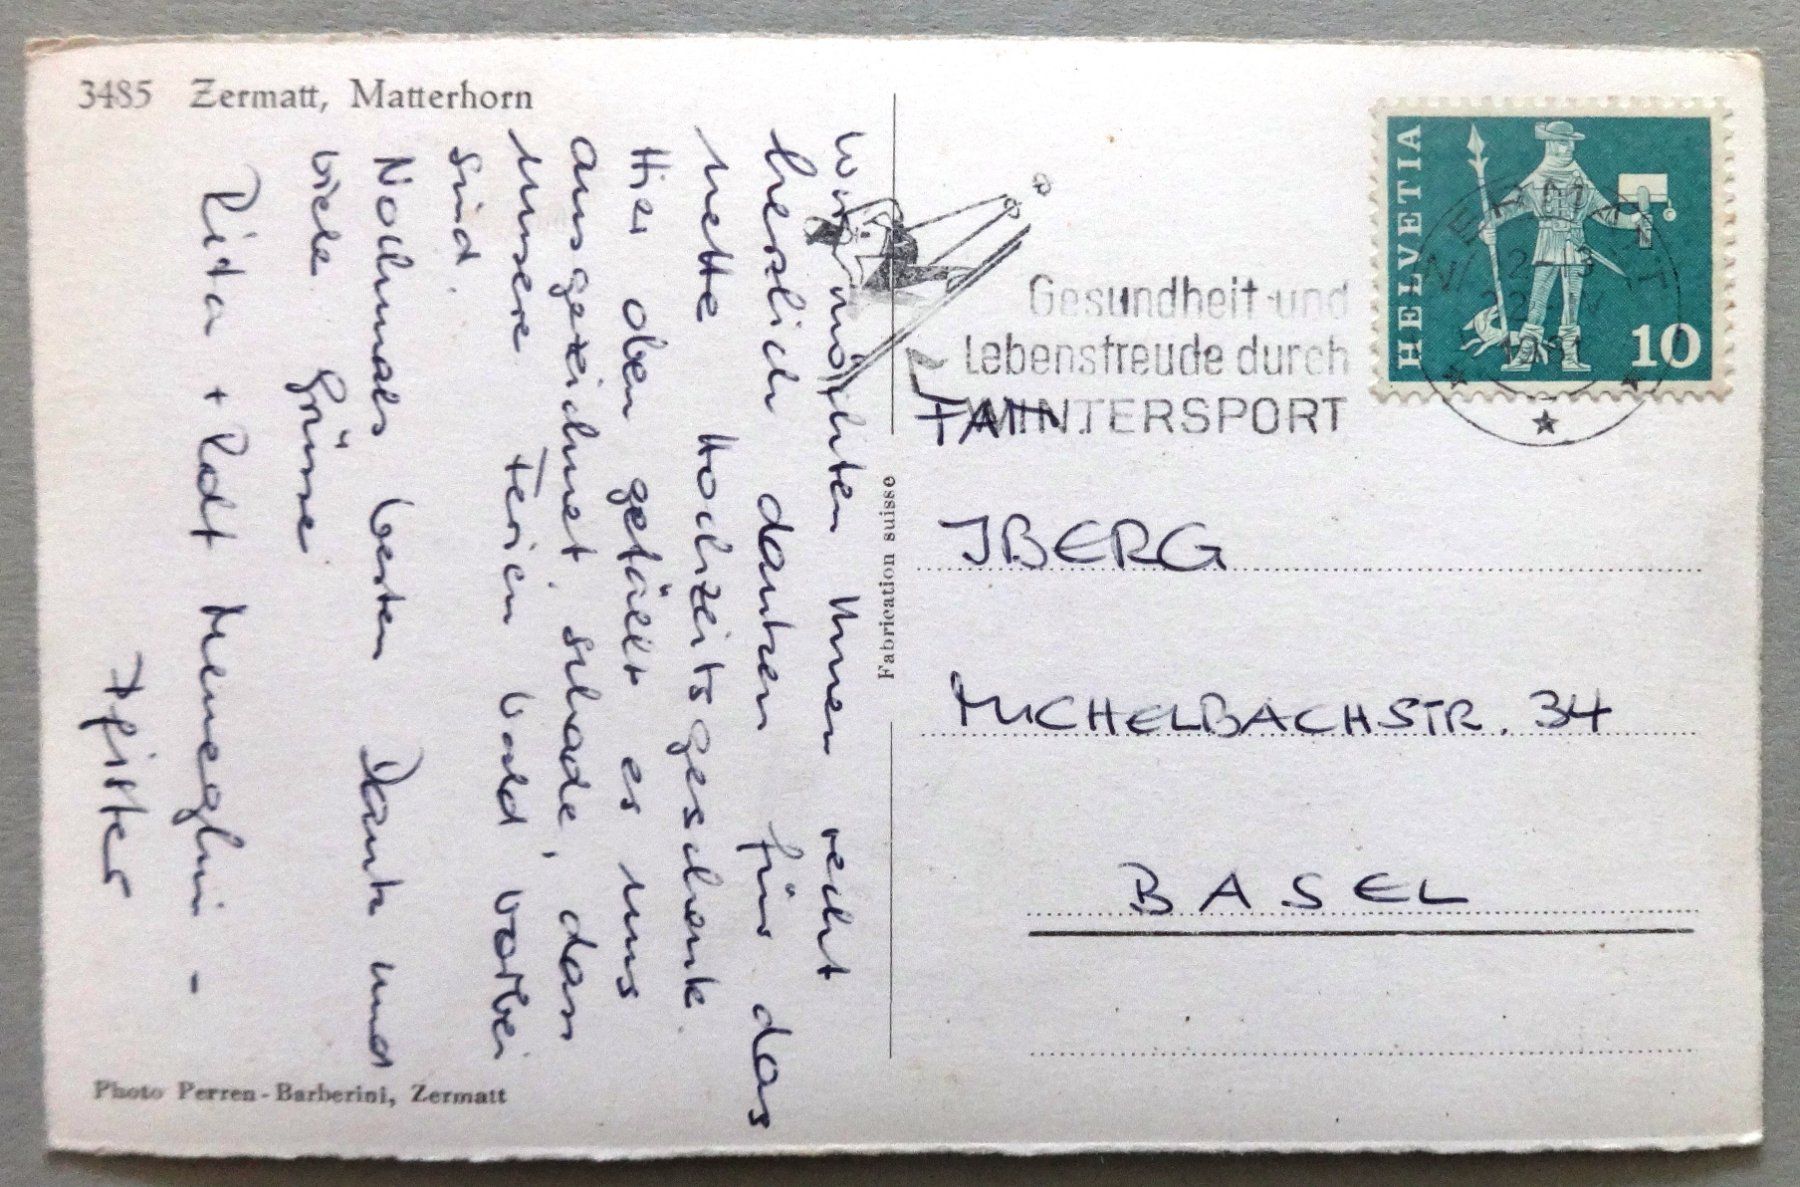 3485 Zermatt, Matterhorn
Wir möchten Ihnen recht
herzlich danken für das
nette Hochzeitsgeschenk.
Hier oben gefällt es uns
ausgezeichnet, schade, dass
unsere Ferien bald vorbei
sind.
Nochmals besten Dank und
viele Grüsse
Rita +
Pfister
Photo Perren-Barberini, Zermatt
Fabrication suisse
Gesundheit und
Lebensfreude durch
WINTERSPORT
HELVETIA
10
ZERMATT
FAM.
IBERG
MICHELBACHSTR. 34
BASEL